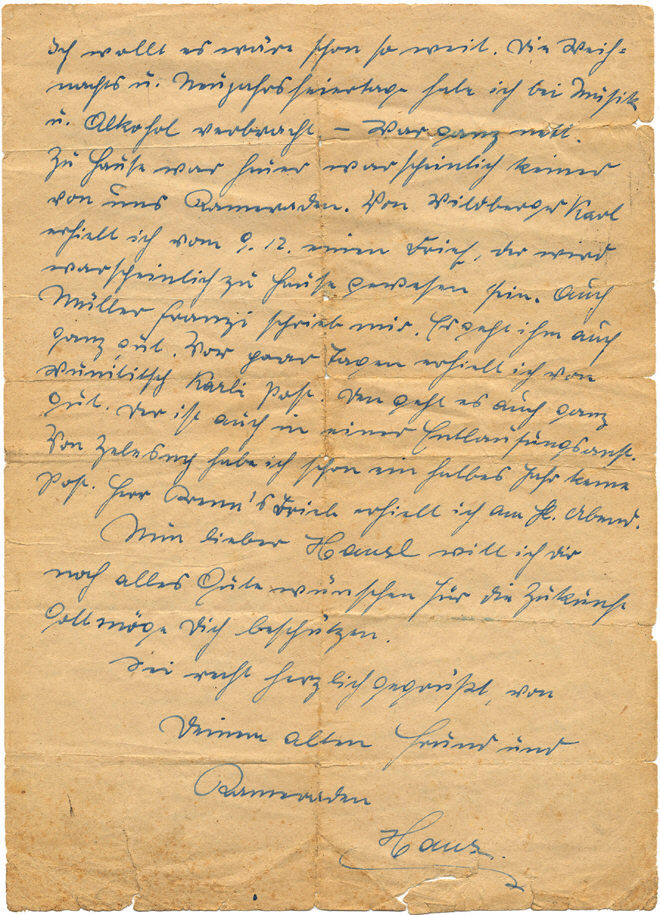 Ich wollt es wäre schon so weit. Die Weih=
nachts u. Neujahrsfeiertage habe ich bei Musik
u. Alkohol verbracht. – War ganz nett.
Zu Hause war heuer warscheinlich keiner
von uns Kameraden. Von Wildberger Karl
erhielt ich vom 9.12. einen Brief, der wird
warscheinlich zu Hause gewesen sein. Auch
Müller Franzi schrieb mir. Es geht ihm auch
ganz gut. Vor paar Tagen erhielt ich von
Karli Post. Den geht es auch ganz
gut. Der ist auch in einer Entlausungsanst.
Von habe ich schon ein halbes Jahr keine
Post. Herr Brief erhielt ich am Hl. Abend.
Nun lieber Hansl will ich dir
noch alles Gute wünschen für die Zukunft
Gott möge Dich beschützen.
Sei recht herzlich gegrüßt, von
Deinen alten Freund und
Kameraden
Hans.